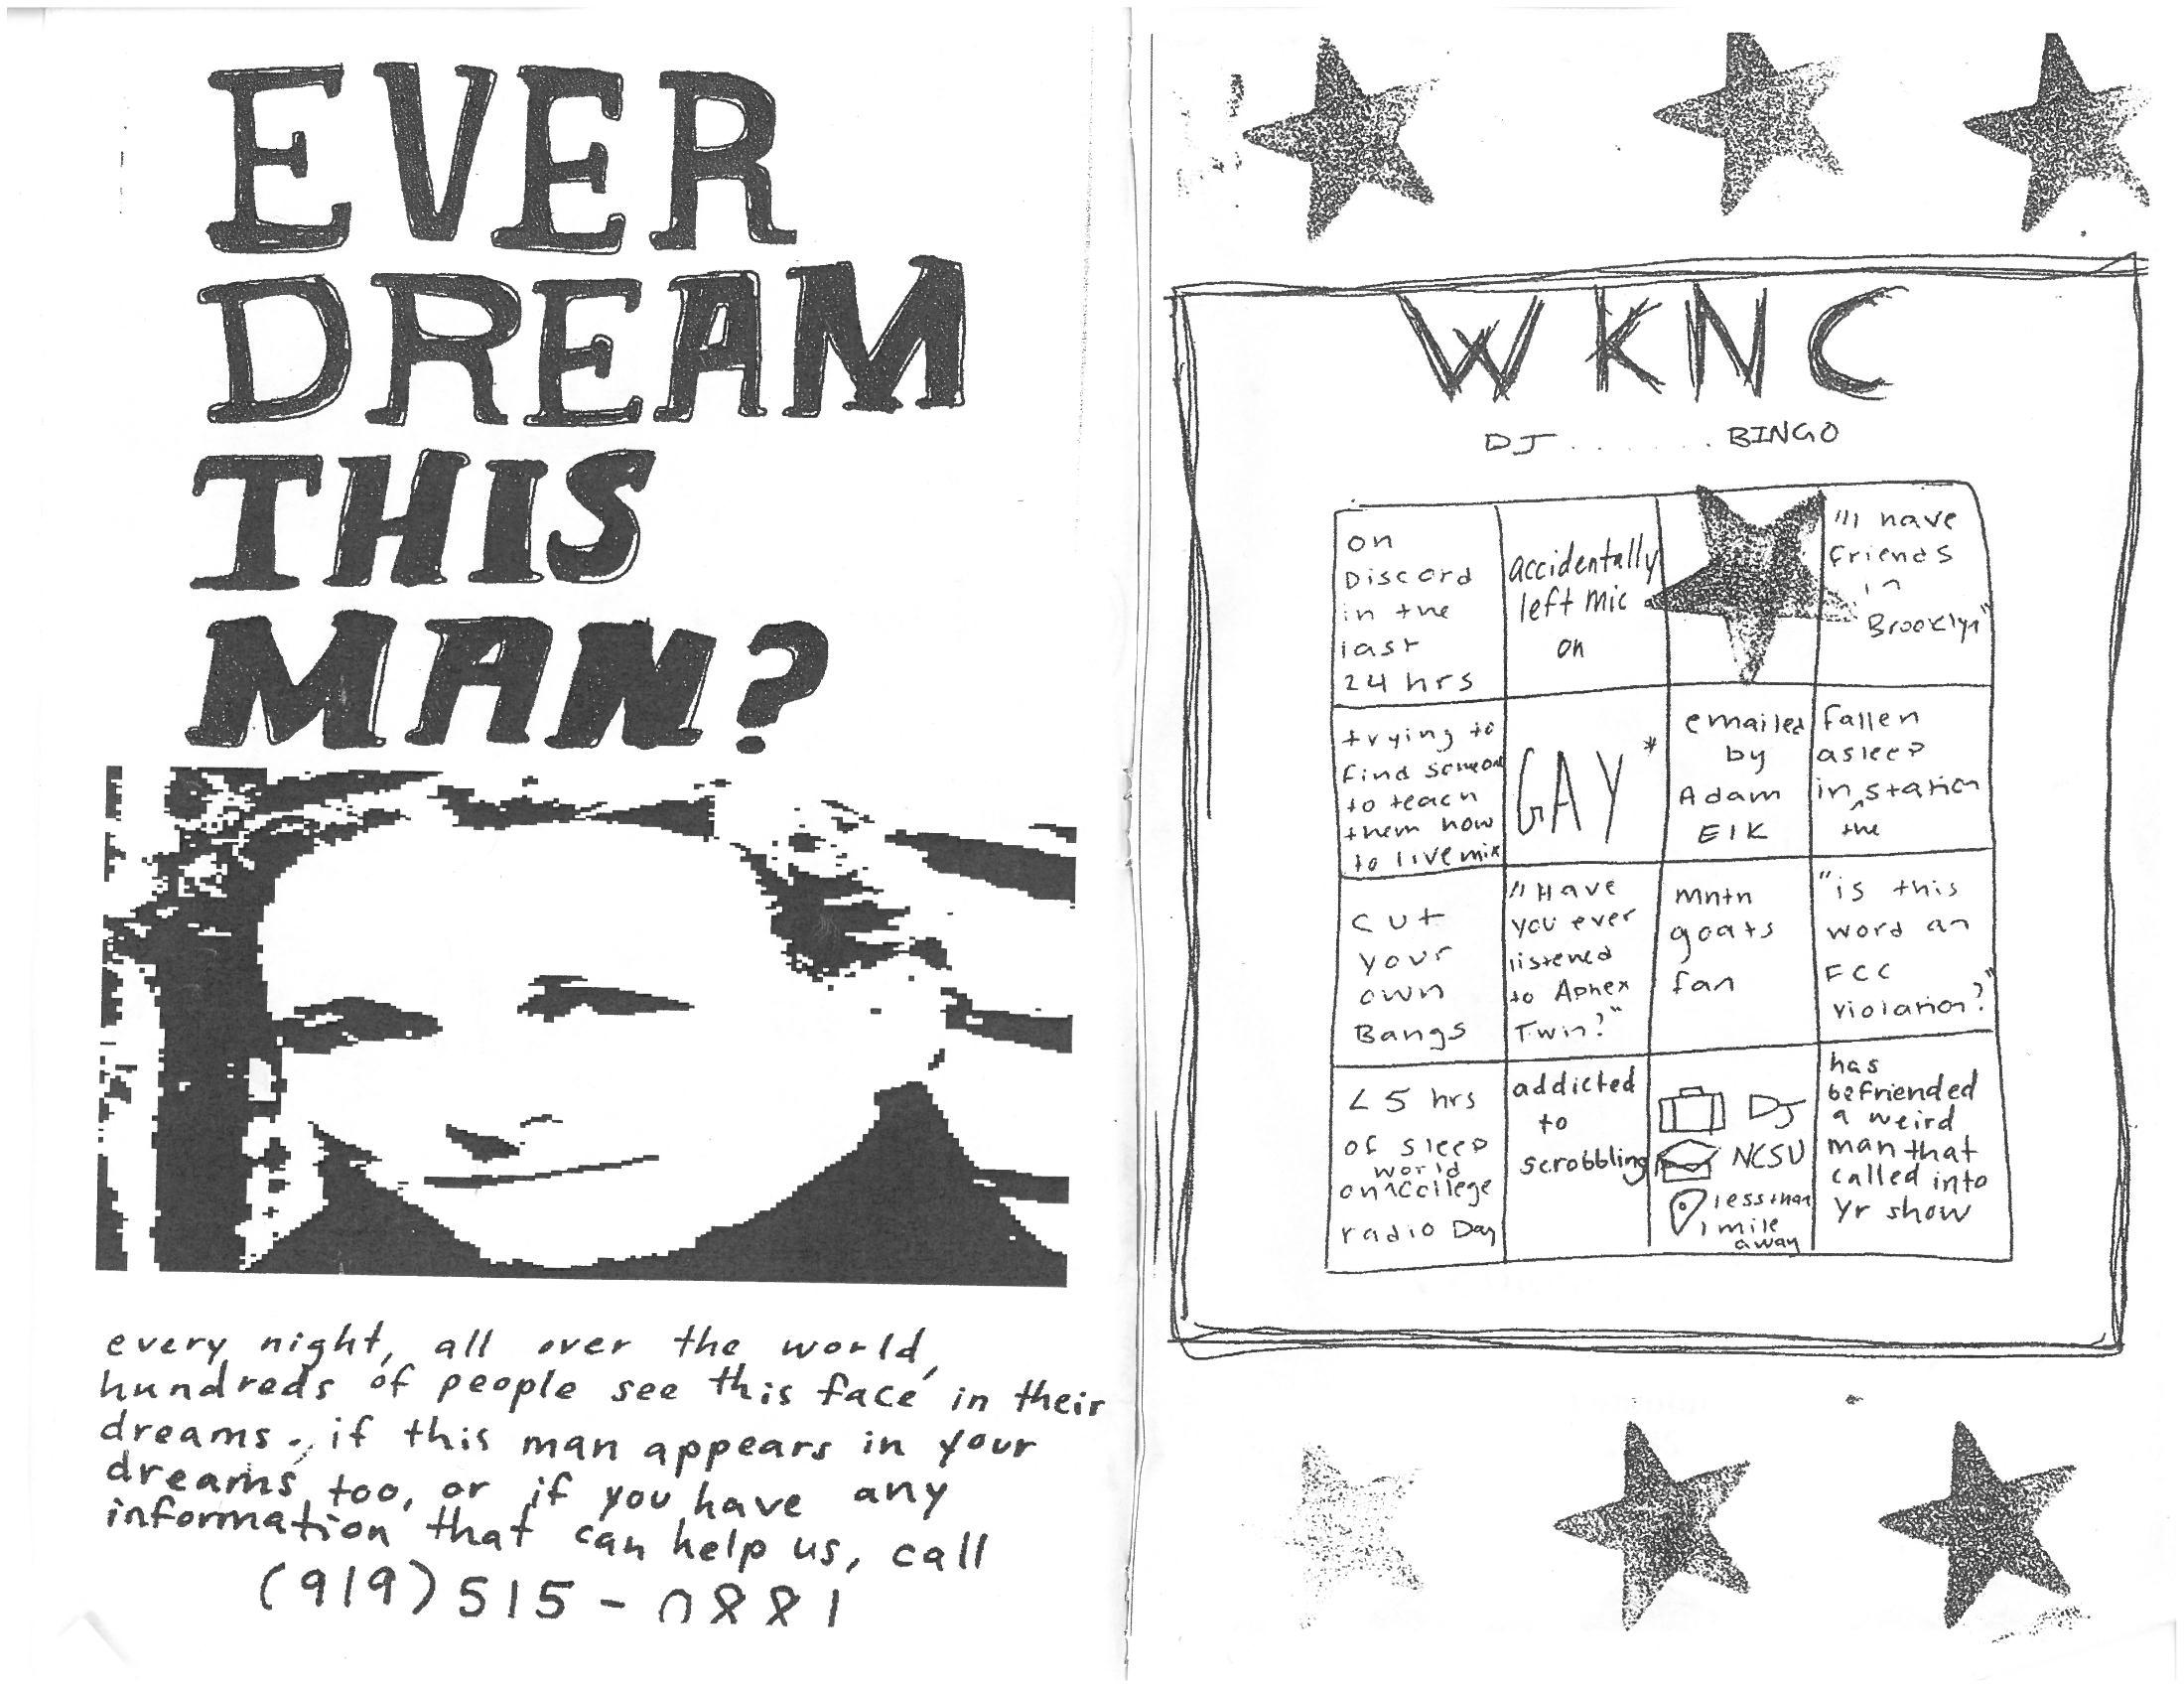 EVER
DREAM
THIS
MAN?
every night, all over the world,
hundreds of people see this face in their
dreams. if this man appears in your
dreams too, or if you have any
information that can help us, call
(919) 515-0881
WKNC
DJ ....... BINGO
on
Discord
in the
last
24 hrs
accidentally
left mic
on
"I have
friends
in
Brooklyn"
trying to
find someone
to teach
them how
to live mix
GAY*
emailed
by
Adam
Elk
fallen
asleep
in ^ station
the
cut
your
own
Bangs
"Have
you ever
listened
to Aphex
Twin?"
mntn
goats
fan
"is this
word an
FCC
violation?"
< 5 hrs
of sleep
world
on ^ college
radio Day
addicted
to
scrobbling
DJ
NCSU
less than
1 mile
away
has
befriended
a weird
man that
called into
yr show